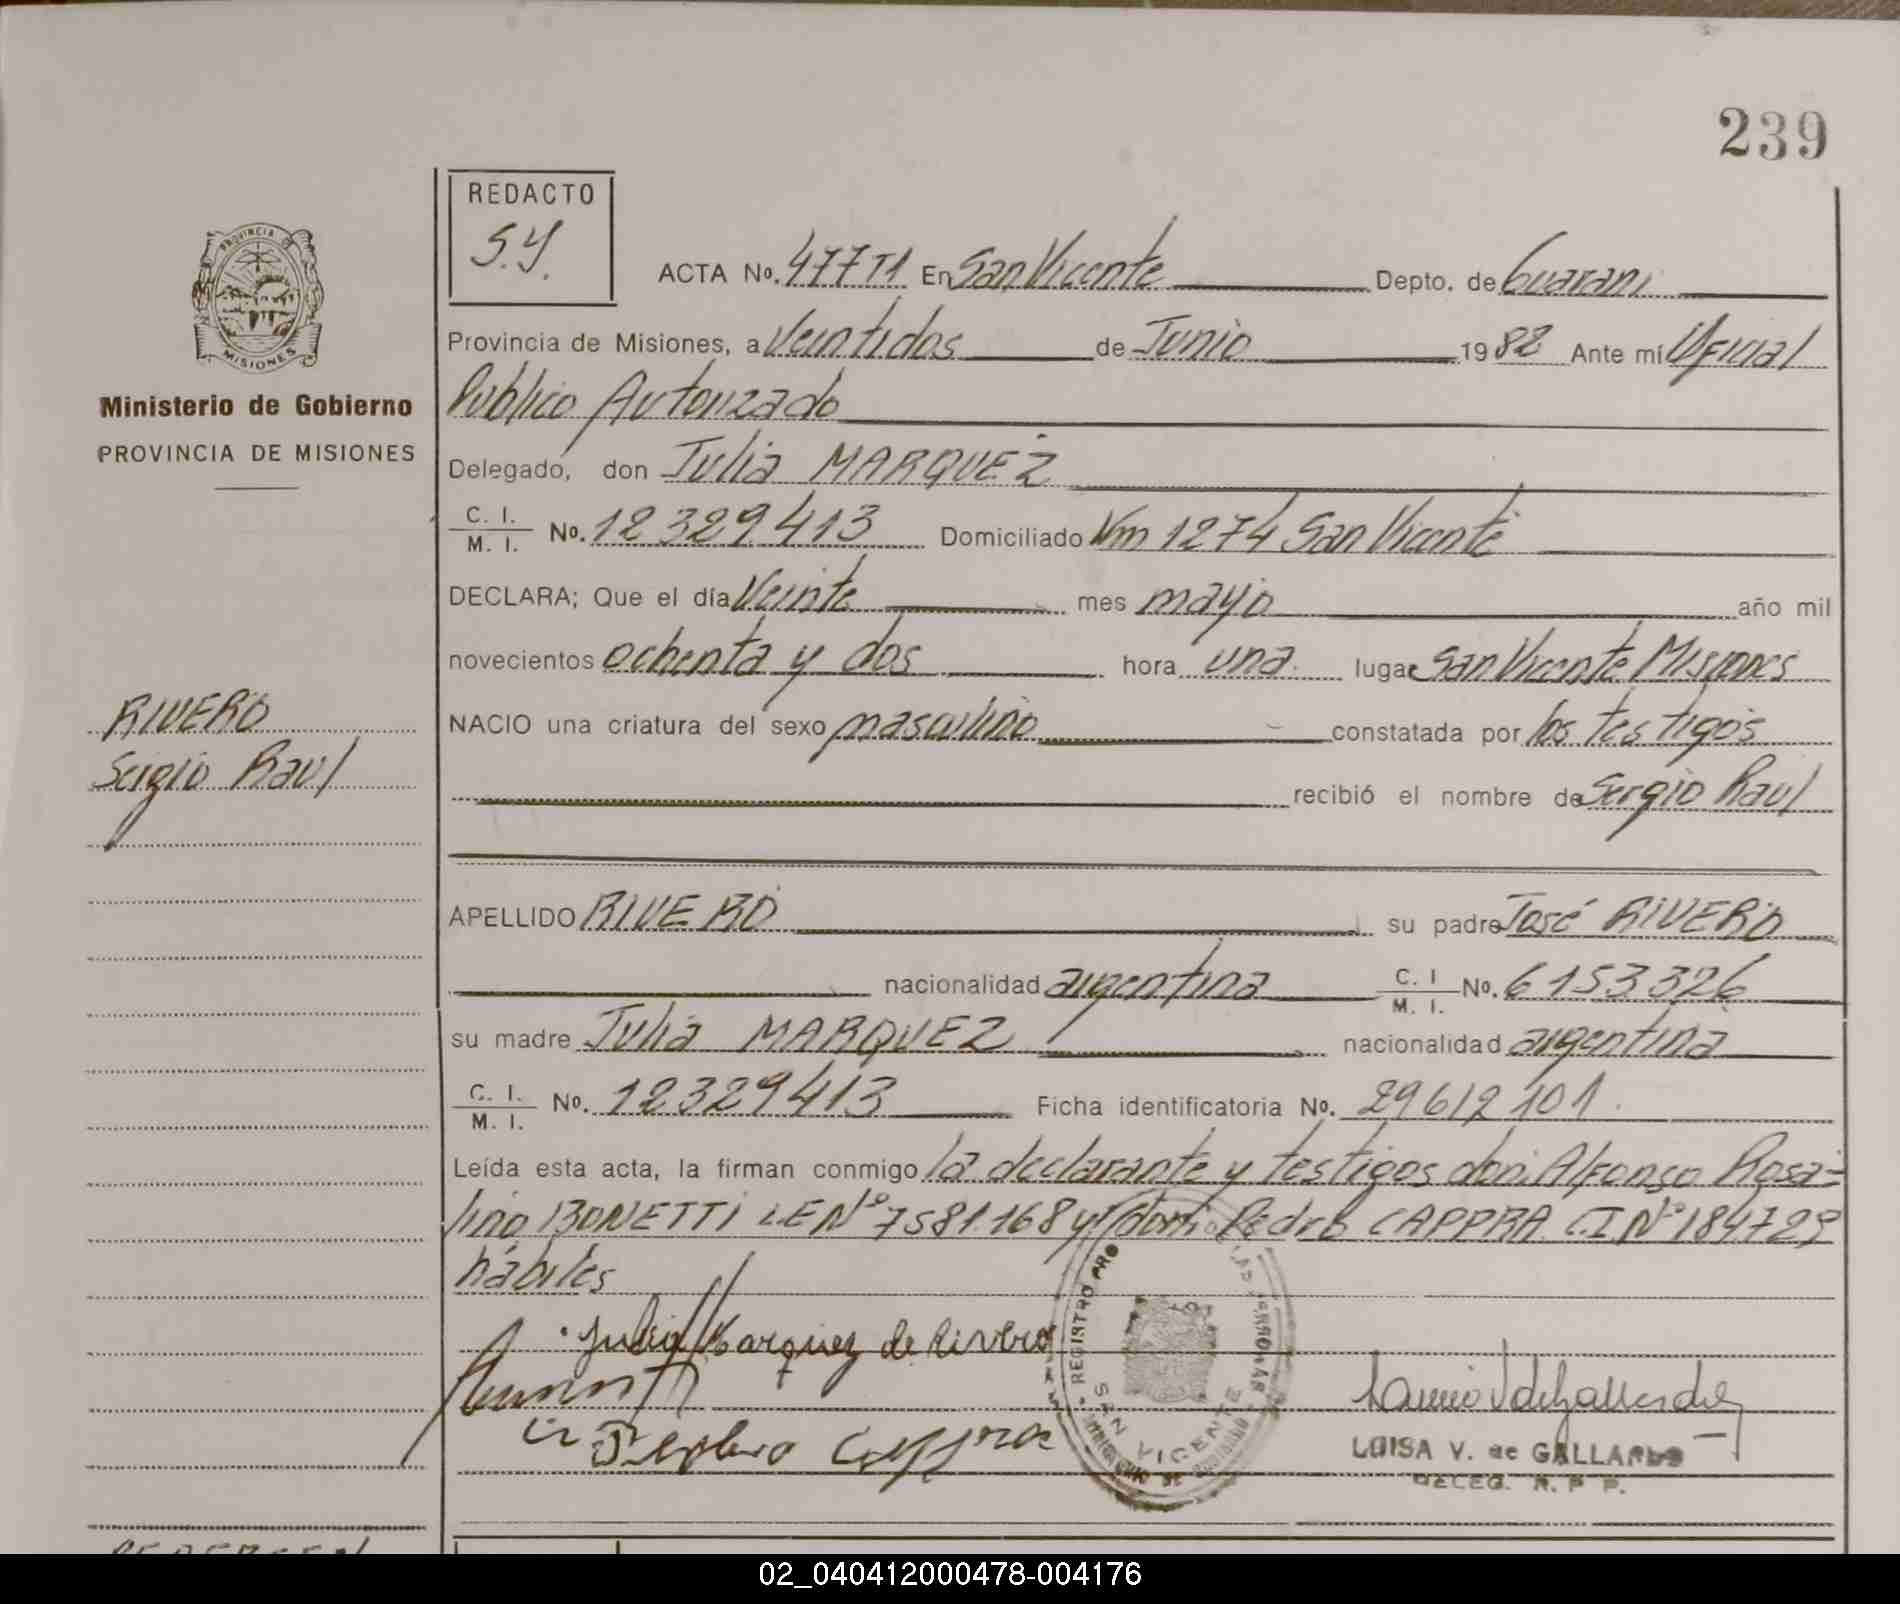 239
REDACTO
S.Y.
PROVINCIA DE
MISIONES
Ministerio de Gobierno
PROVINCIA DE MISIONES
RIVERO
Sergio Raul
ACTA No. 477 T1 En San Vicente Depto. de Guarani
Provincia de Misiones, a Veintidos de Junio 1982 Ante mí Oficial
Publico Autorizado
Delegado, don Julia MARQUEZ
C. I. / M. I. No. 12329413 Domiciliado Km 1274 San Vicente
DECLARA; Que el día Veinte mes mayo año mil
novecientos ochenta y dos hora una lugar San Vicente Misiones
NACIO una criatura del sexo masculino constatada por los testigos
recibió el nombre de Sergio Raul
APELLIDO RIVERO su padre José RIVERO
nacionalidad argentina C. I / M. I. No. 6153326
su madre Julia MARQUEZ nacionalidad argentina
C. I. / M. I. No. 12329413 Ficha identificatoria No. 29612101
Leída esta acta, la firman conmigo la declarante y testigos don Alfonso Rosa=
lino BONETTI LE Nº 7581.168 y don Pedro CAPPRA C.I Nº 184729
hábiles
Julia Marquez de Rivero
REGISTRO PRO
SAN VICENTE
LUISA V. de GALLARDO
DELEG. R. P P.
02_040412000478-004176